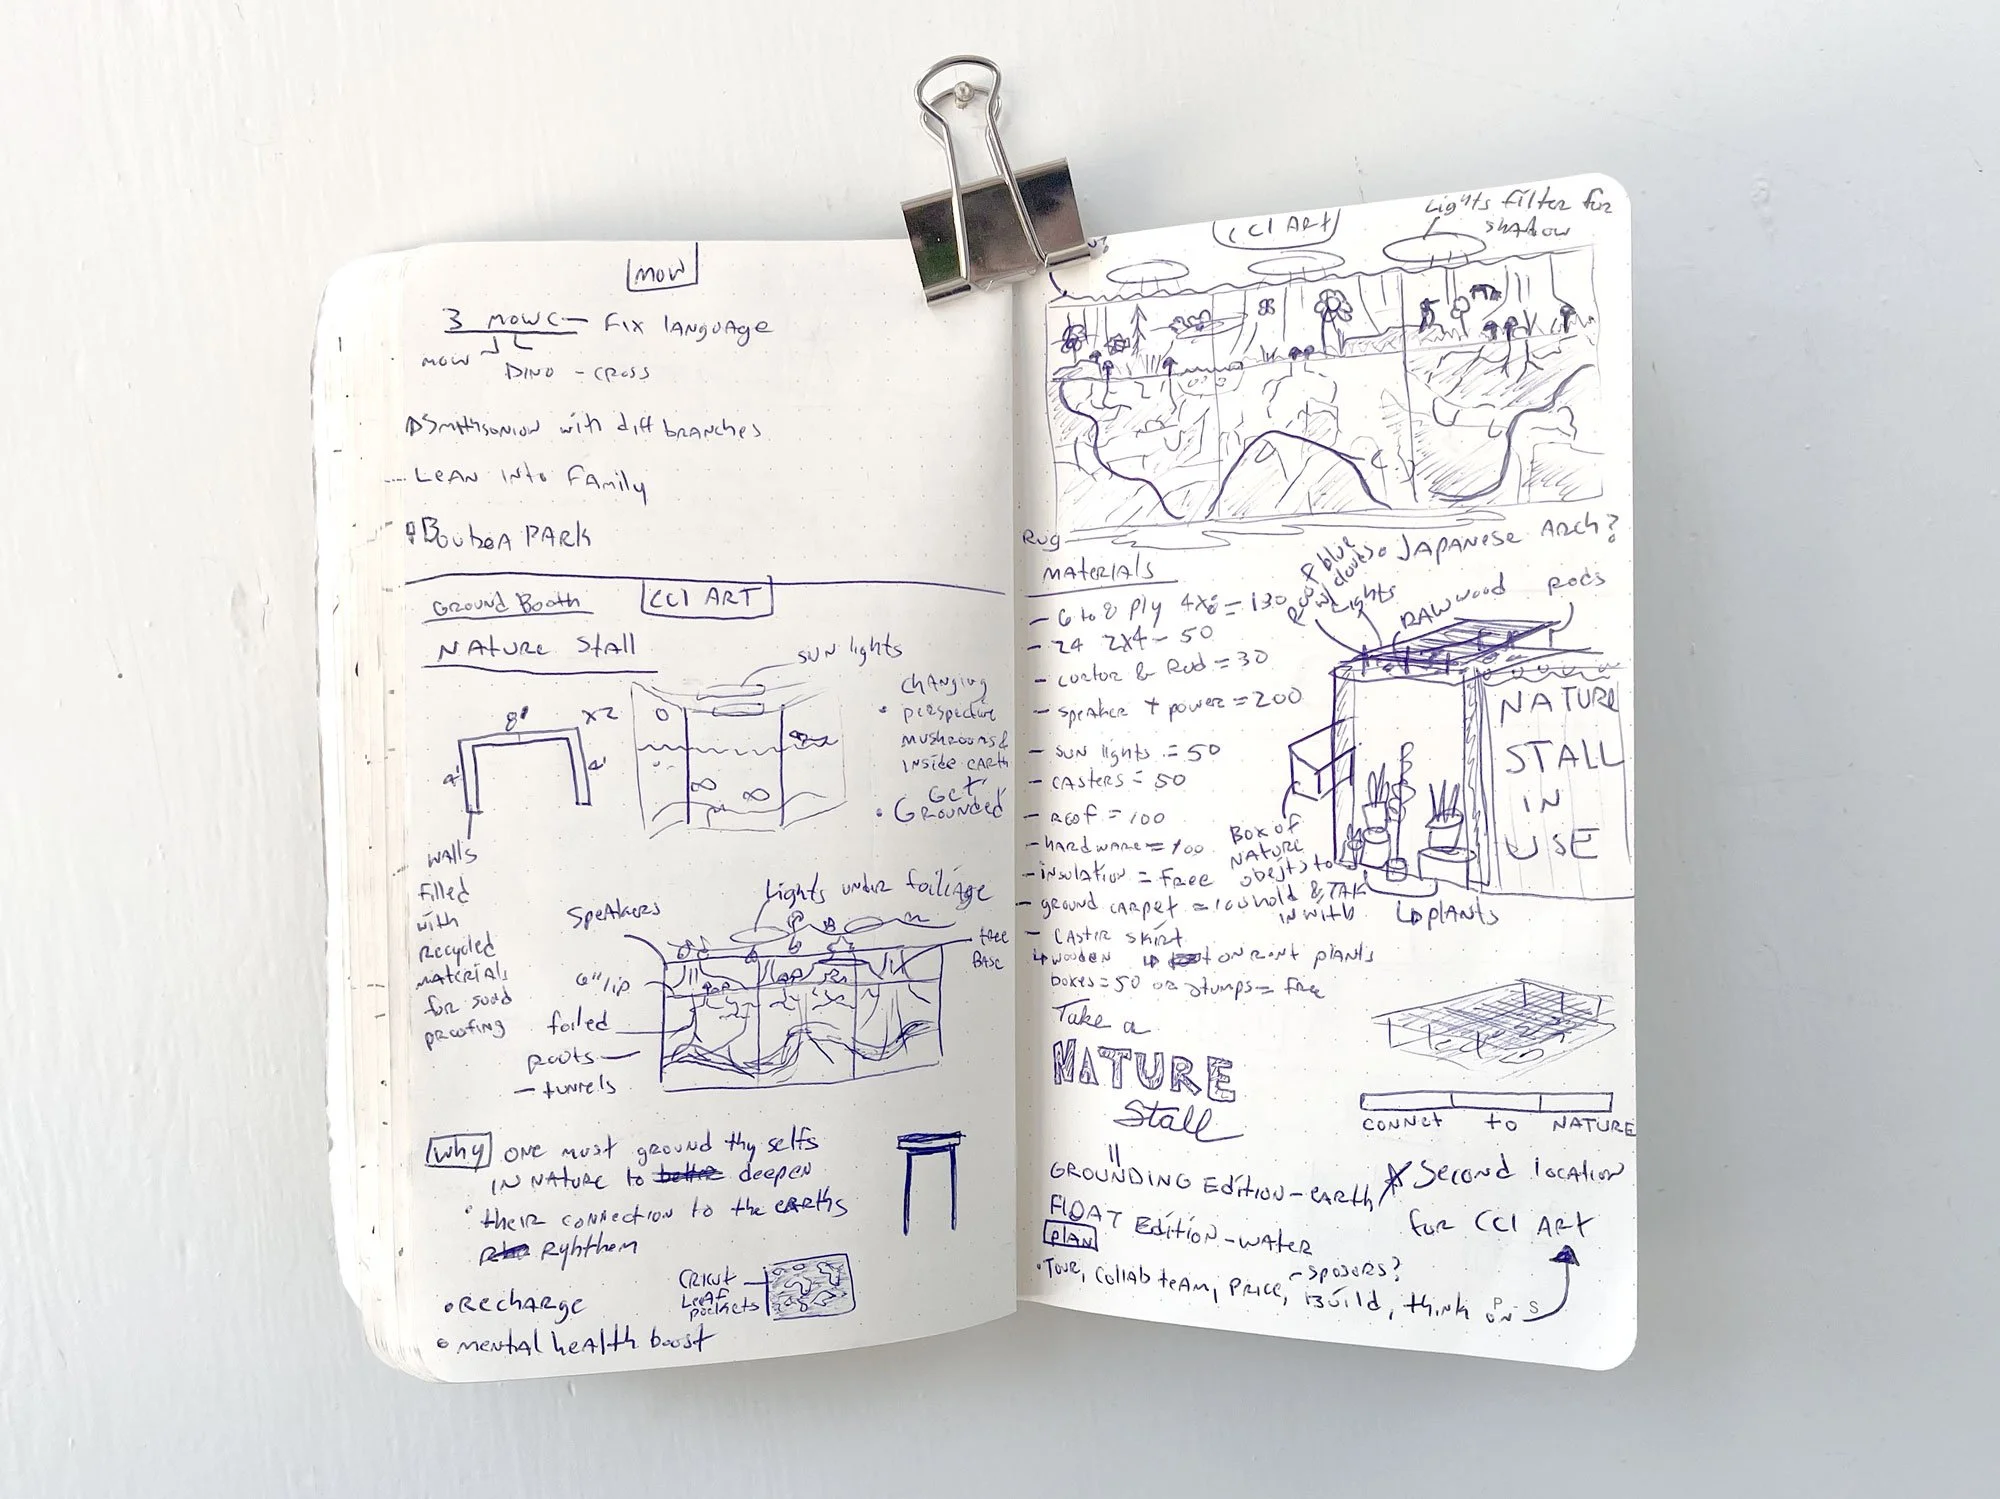 MOW
3 MOWC — FIX LANGUAGE
MOW
DINO - CROSS
SMithsoniON with diff branches
LEAN INto FAMily
BouboA PARK
GROUND BOOTH
CCI ART
NATURE Stall
SUN lights
8'
X2
4'
4'
CHANGING
perspective
MUSHROOMS &
INside EARTH
GET
GROUNDED
WAlls
Filled
with
Recycled
MAteriAls
for
proofing
Lights under foiliage
SpeAkers
tree
BASE
6" lip
foiled
Roots
- tunnels
Why
ONE must ground thy selfs
IN NATURE to better deepen
their connection to the EARths
Ryhthem
CRICUT
LEAF
pockets
• RechARge
• MENTAl heAlth boost
Lights Filter for
SHADOW
CCI ART
Rug
JAPANESE ARCH?
MAteriAls
- 6 to 8 Ply 4x8 = 130
- 24 2x4 - 50
& Rod = 30
- speAker + power = 200
- SUN lights = 50
- CASTERS = 50
- ROOF = 100
- hARdwARE = 100
- INSulAtion = FREE
- ground cARpet = 100
- CASTER skirt
wooden
boxes = 50 or stumps = FREE
blue
Lights
RAW wood
Rods
NATURE
STALL
IN
USE
Box of
NATURE
objsts to
hold & TAk
IN with
plANts
or Rent plANts
Take a
NATURE
Stall
CONNCt to NATURE
GROUNDING Edition - EARth
FLOAT Edition - WATER
Second locAtion
for CCI ART
PlAN
• Tour, CollAb teAM, PRice, - Sposors?
Build, think on
P - S